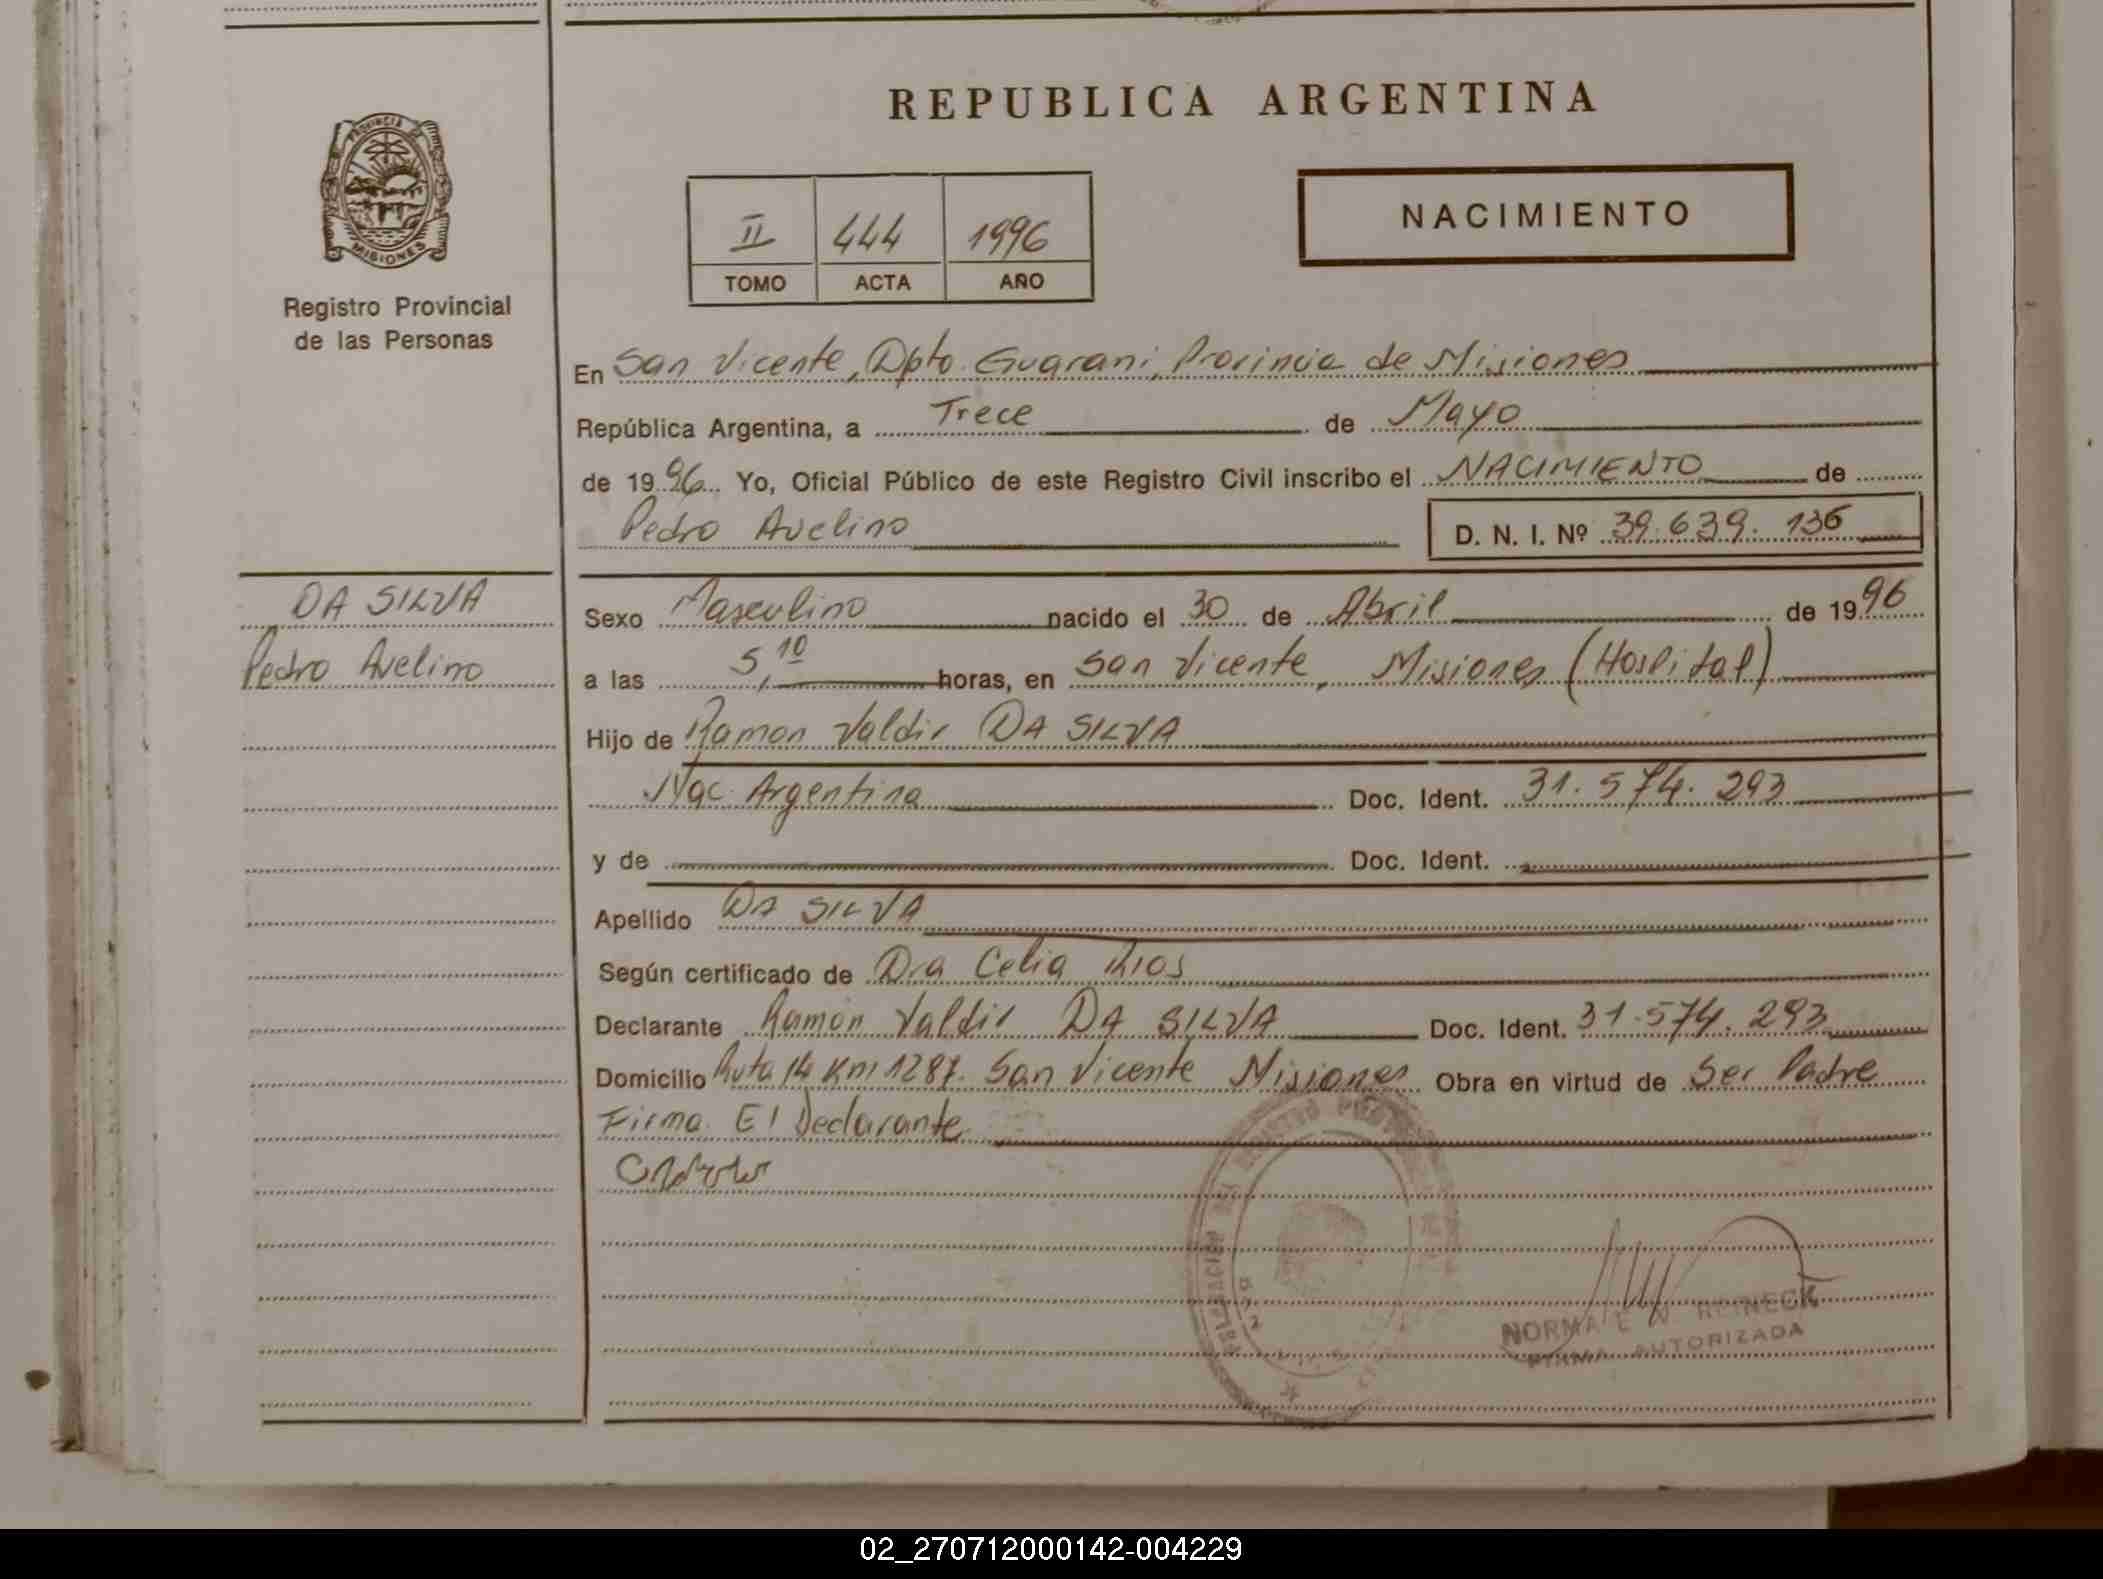 REPUBLICA ARGENTINA
PROVINCIA DE
MISIONES
Registro Provincial
de las Personas
II 444 1996
TOMO ACTA AÑO
NACIMIENTO
En San Vicente, Dpto. Guarani, Provincia de Misiones
República Argentina, a Trece de Mayo
de 1996 Yo, Oficial Público de este Registro Civil inscribo el NACIMIENTO de
Pedro Avelino D. N. I. Nº 39.639.136
DA SILVA
Pedro Avelino
Sexo Masculino nacido el 30 de Abril de 1996
a las 5,10 horas, en San Vicente, Misiones (Hospital)
Hijo de Ramon Valdir DA SILVA
Nac. Argentina Doc. Ident. 31.574.293
y de Doc. Ident.
Apellido DA SILVA
Según certificado de Dra Celia Rios
Declarante Ramon Valdir DA SILVA Doc. Ident. 31.574.293
Domicilio Ruta 14 Km 1287. San Vicente Misiones Obra en virtud de Ser Padre
Firma El Declarante
NORMA E. REINECK
FIRMA AUTORIZADA
02_270712000142-004229